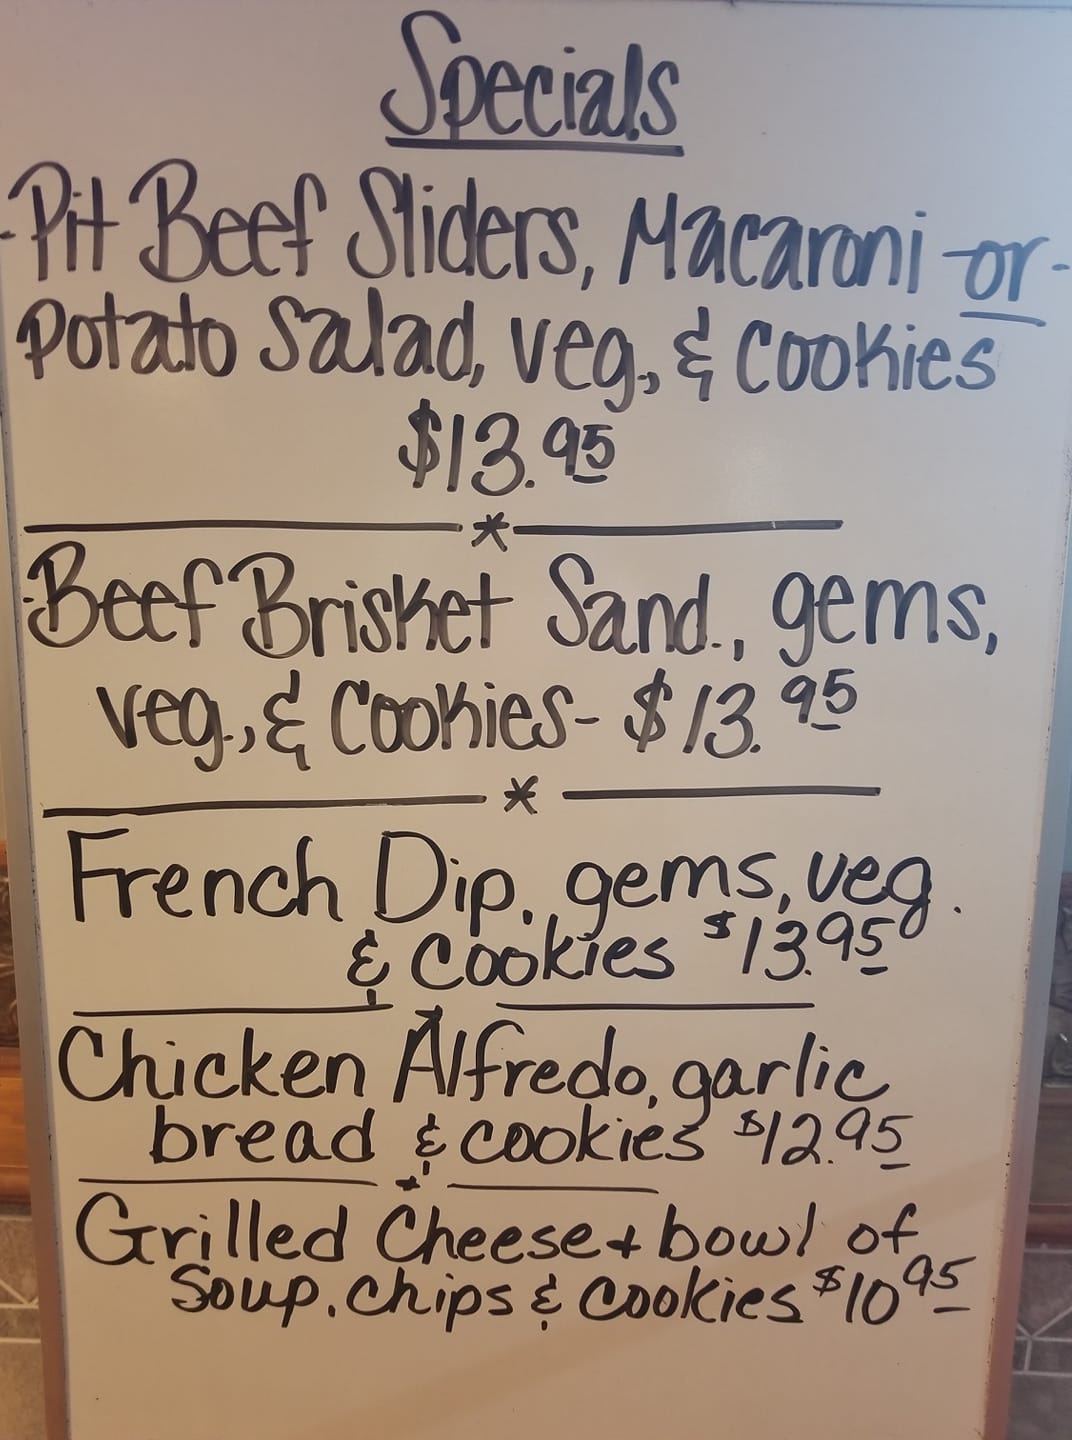 Specials
-Pit Beef Sliders, Macaroni -or-
Potato Salad, veg., & Cookies
$13.95
*
-Beef Brisket Sand., gems,
veg., & Cookies- $13.95
*
French Dip, gems, veg.
& Cookies $13.95
Chicken Alfredo, garlic
bread & cookies $12.95
Grilled Cheese + bowl of
Soup, Chips & Cookies $10.95